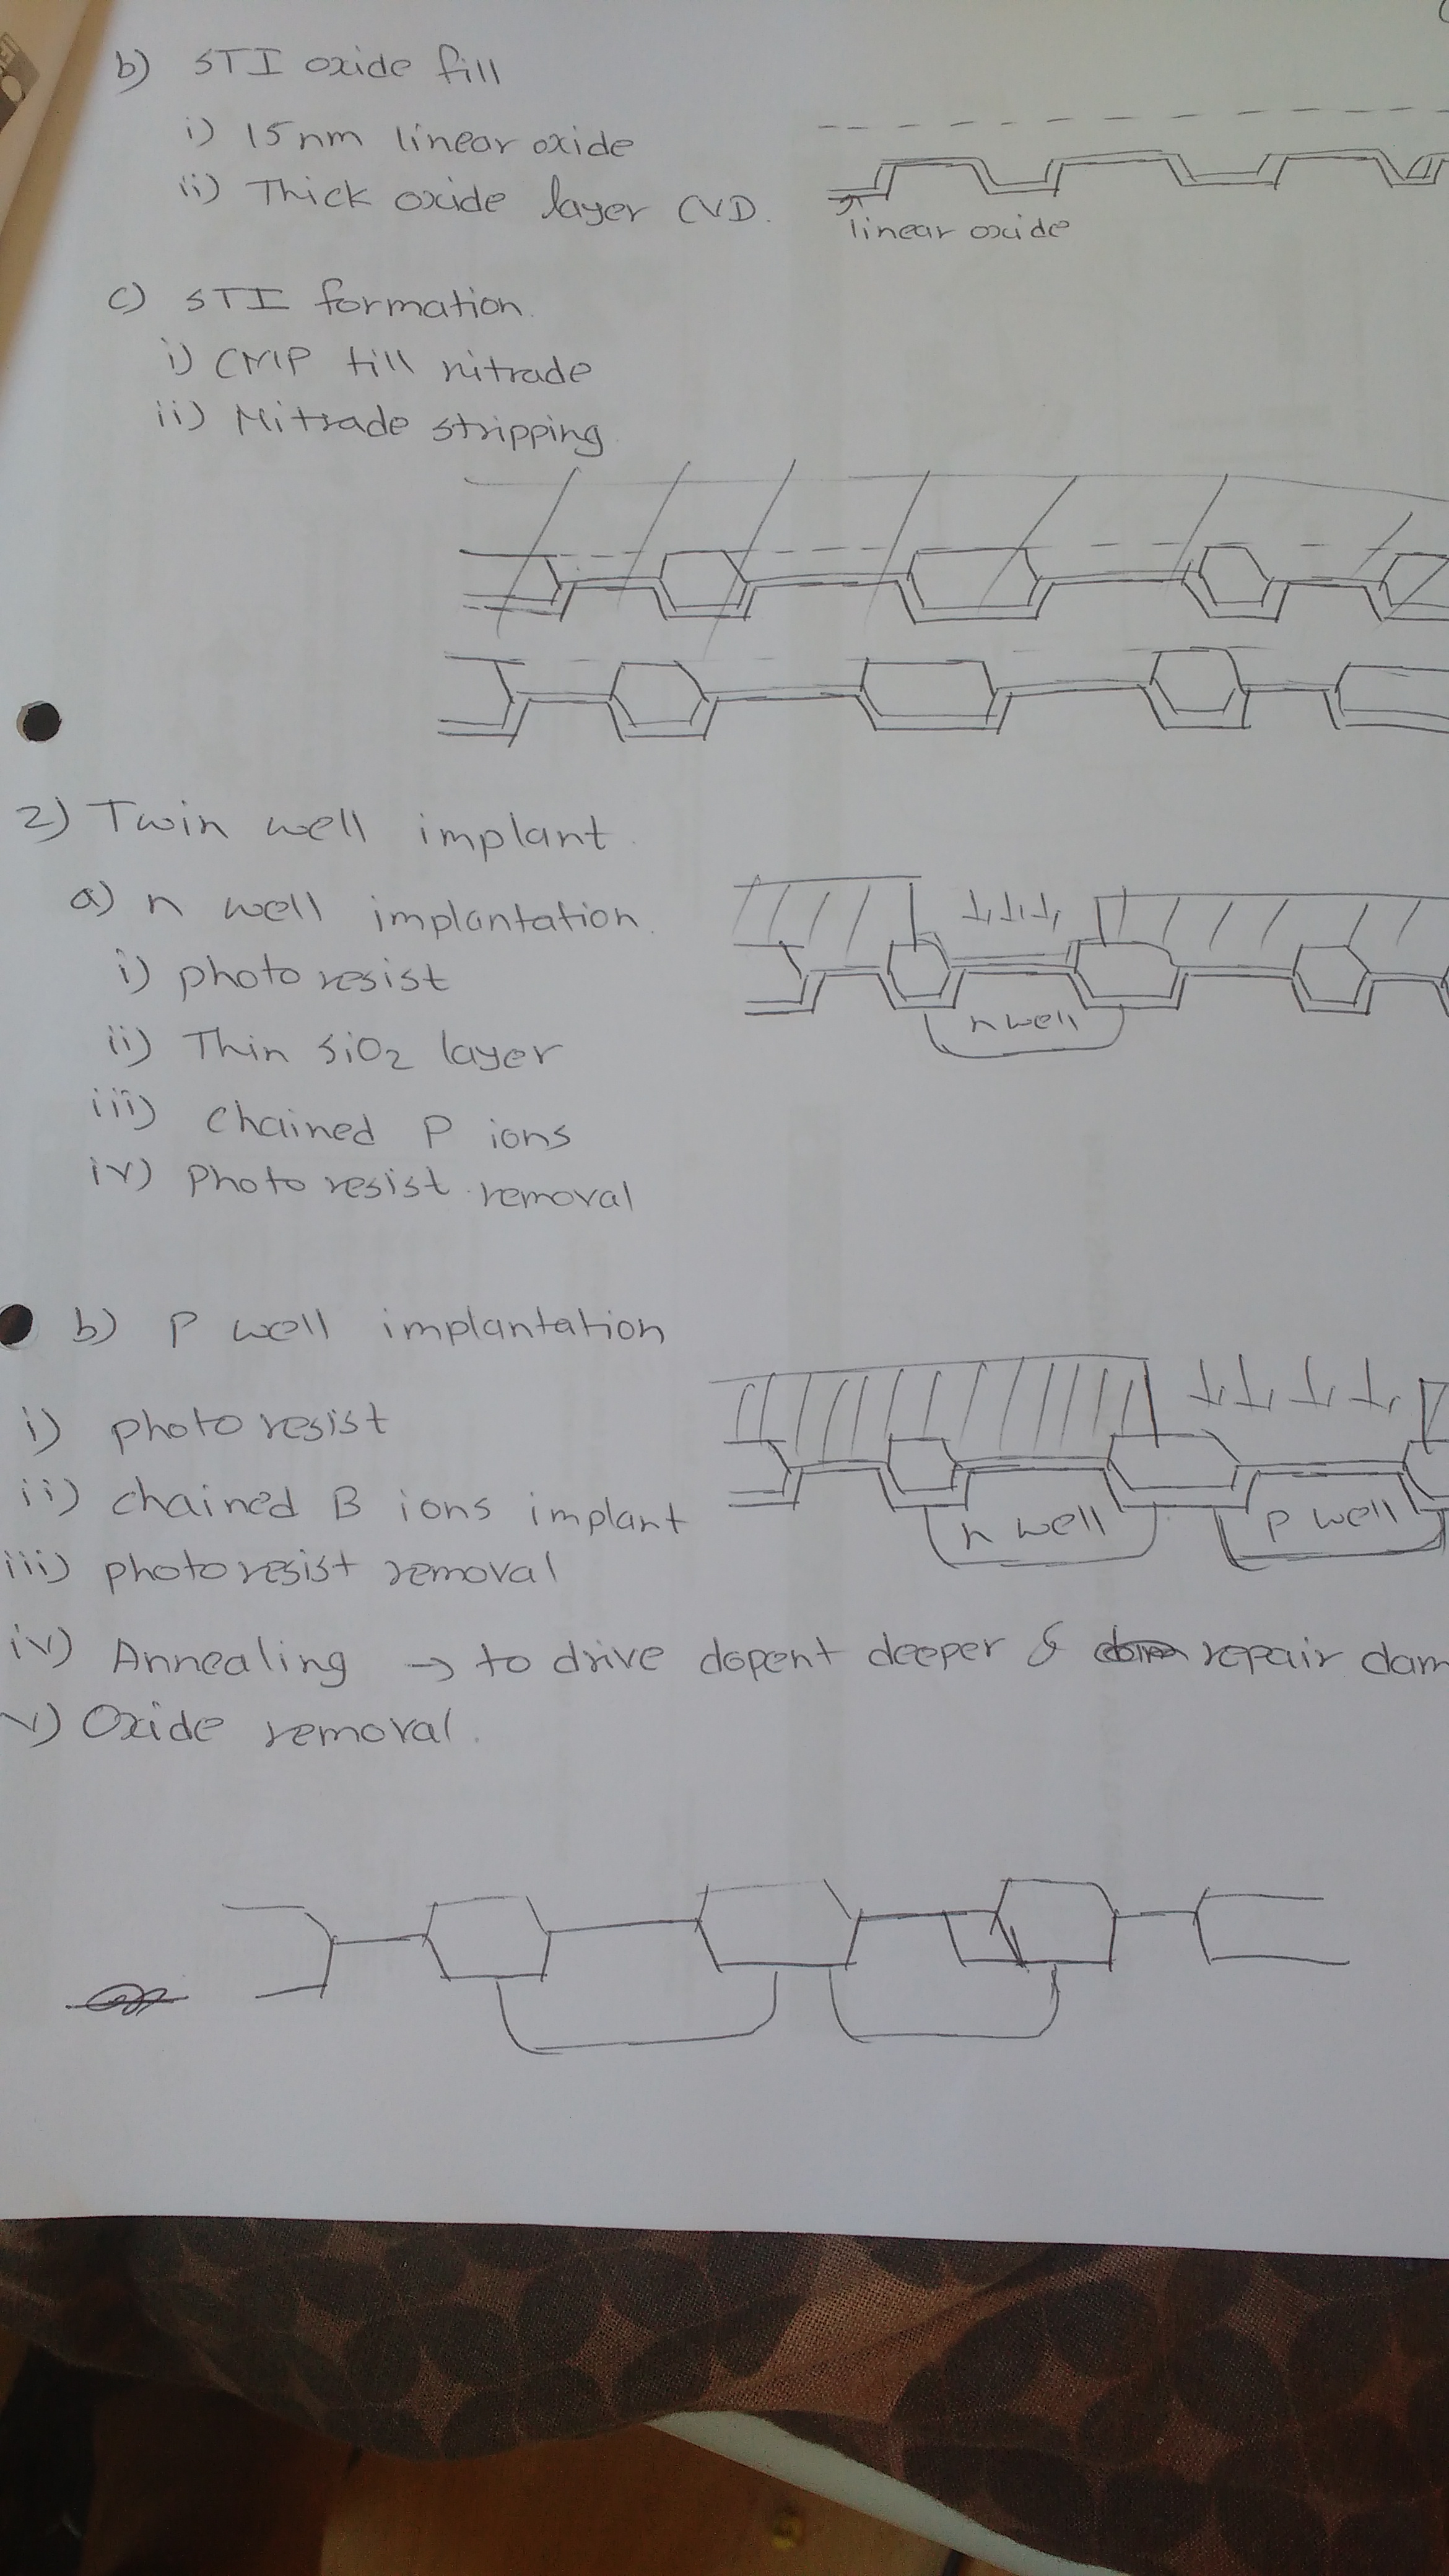 b) STI oxide fill
i) 15nm linear oxide
ii) Thick oxide layer CVD.
linear oxide
c) STI formation.
i) CMP till nitrade
ii) Nitrade stripping
2) Twin well implant.
a) n well implantation.
i) photo resist
ii) Thin SiO2 layer
iii) chained P ions
iv) Photo resist removal
n well
b) P well implantation
i) photo resist
ii) chained B ions implant
iii) photo resist removal
n well
p well
iv) Annealing → to drive dopent deeper & repair dam
v) Oxide removal.